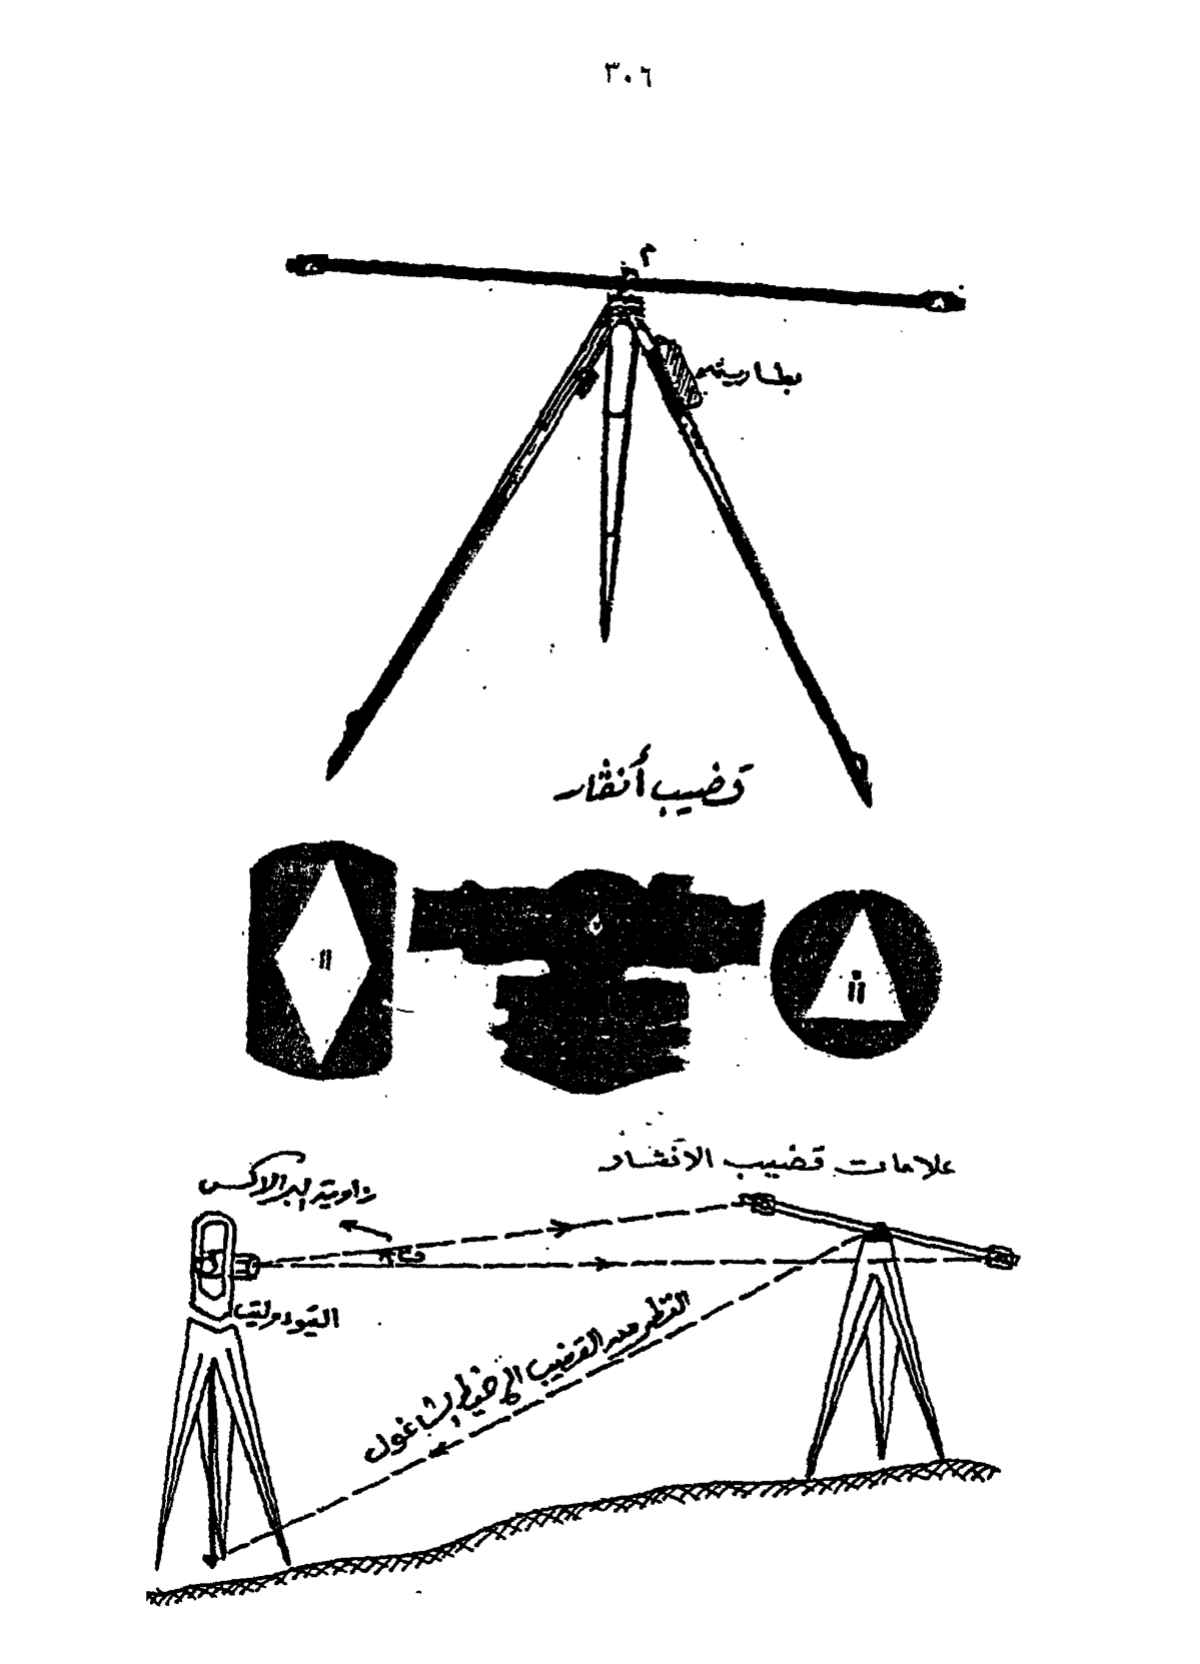 ٣٠٦
م
بطارية
قضيب أنڤار
علامات قضيب الأنڤار
زاوية البرالاكس
التيودوليت
النظر من القضيب إلى خيط الشاغول